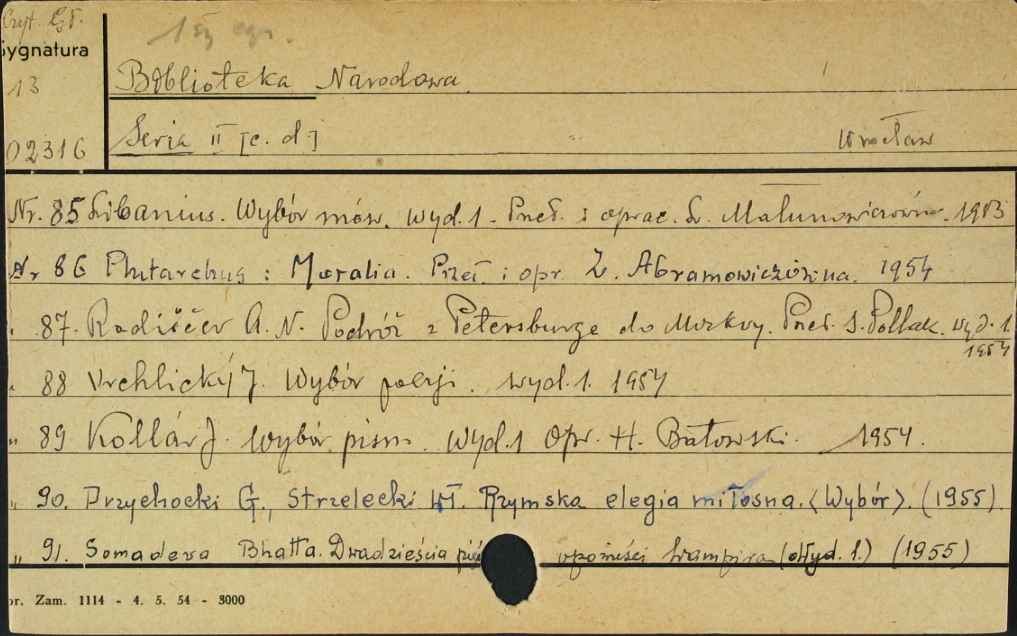 Czyt. Gł.
1 eg. egz.
Sygnatura
13
Biblioteka Narodowa.
02316
Seria II [c. d.]
Wrocław
Nr. 85 Libanius. Wybór mów. Wyd. 1. Przeł. i oprac. L. Małunowiczówna. 1953
Nr 86 Plutarchus: Moralia. Przeł. i opr. Z. Abramowiczówna. 1954
" 87. Radiščev A. N. Podróż z Petersburga do Moskwy. Przeł. S. Pollak. wyd. 1
1954
" 88 Vrchlický J. Wybór poezji. wyd. 1. 1954
" 89 Kollár J. Wybór pism. Wyd. 1 Opr. H. Batowski. 1954.
" 90. Przychocki G., Strzelecki Wł. Rzymska elegia miłosna. <Wybór>. (1955).
" 91. Somadeva Bhatta. Dwadzieścia pięć opowieści Wampira (Wyd. 1.) (1955)
or. Zam. 1114 - 4. 5. 54 - 3000